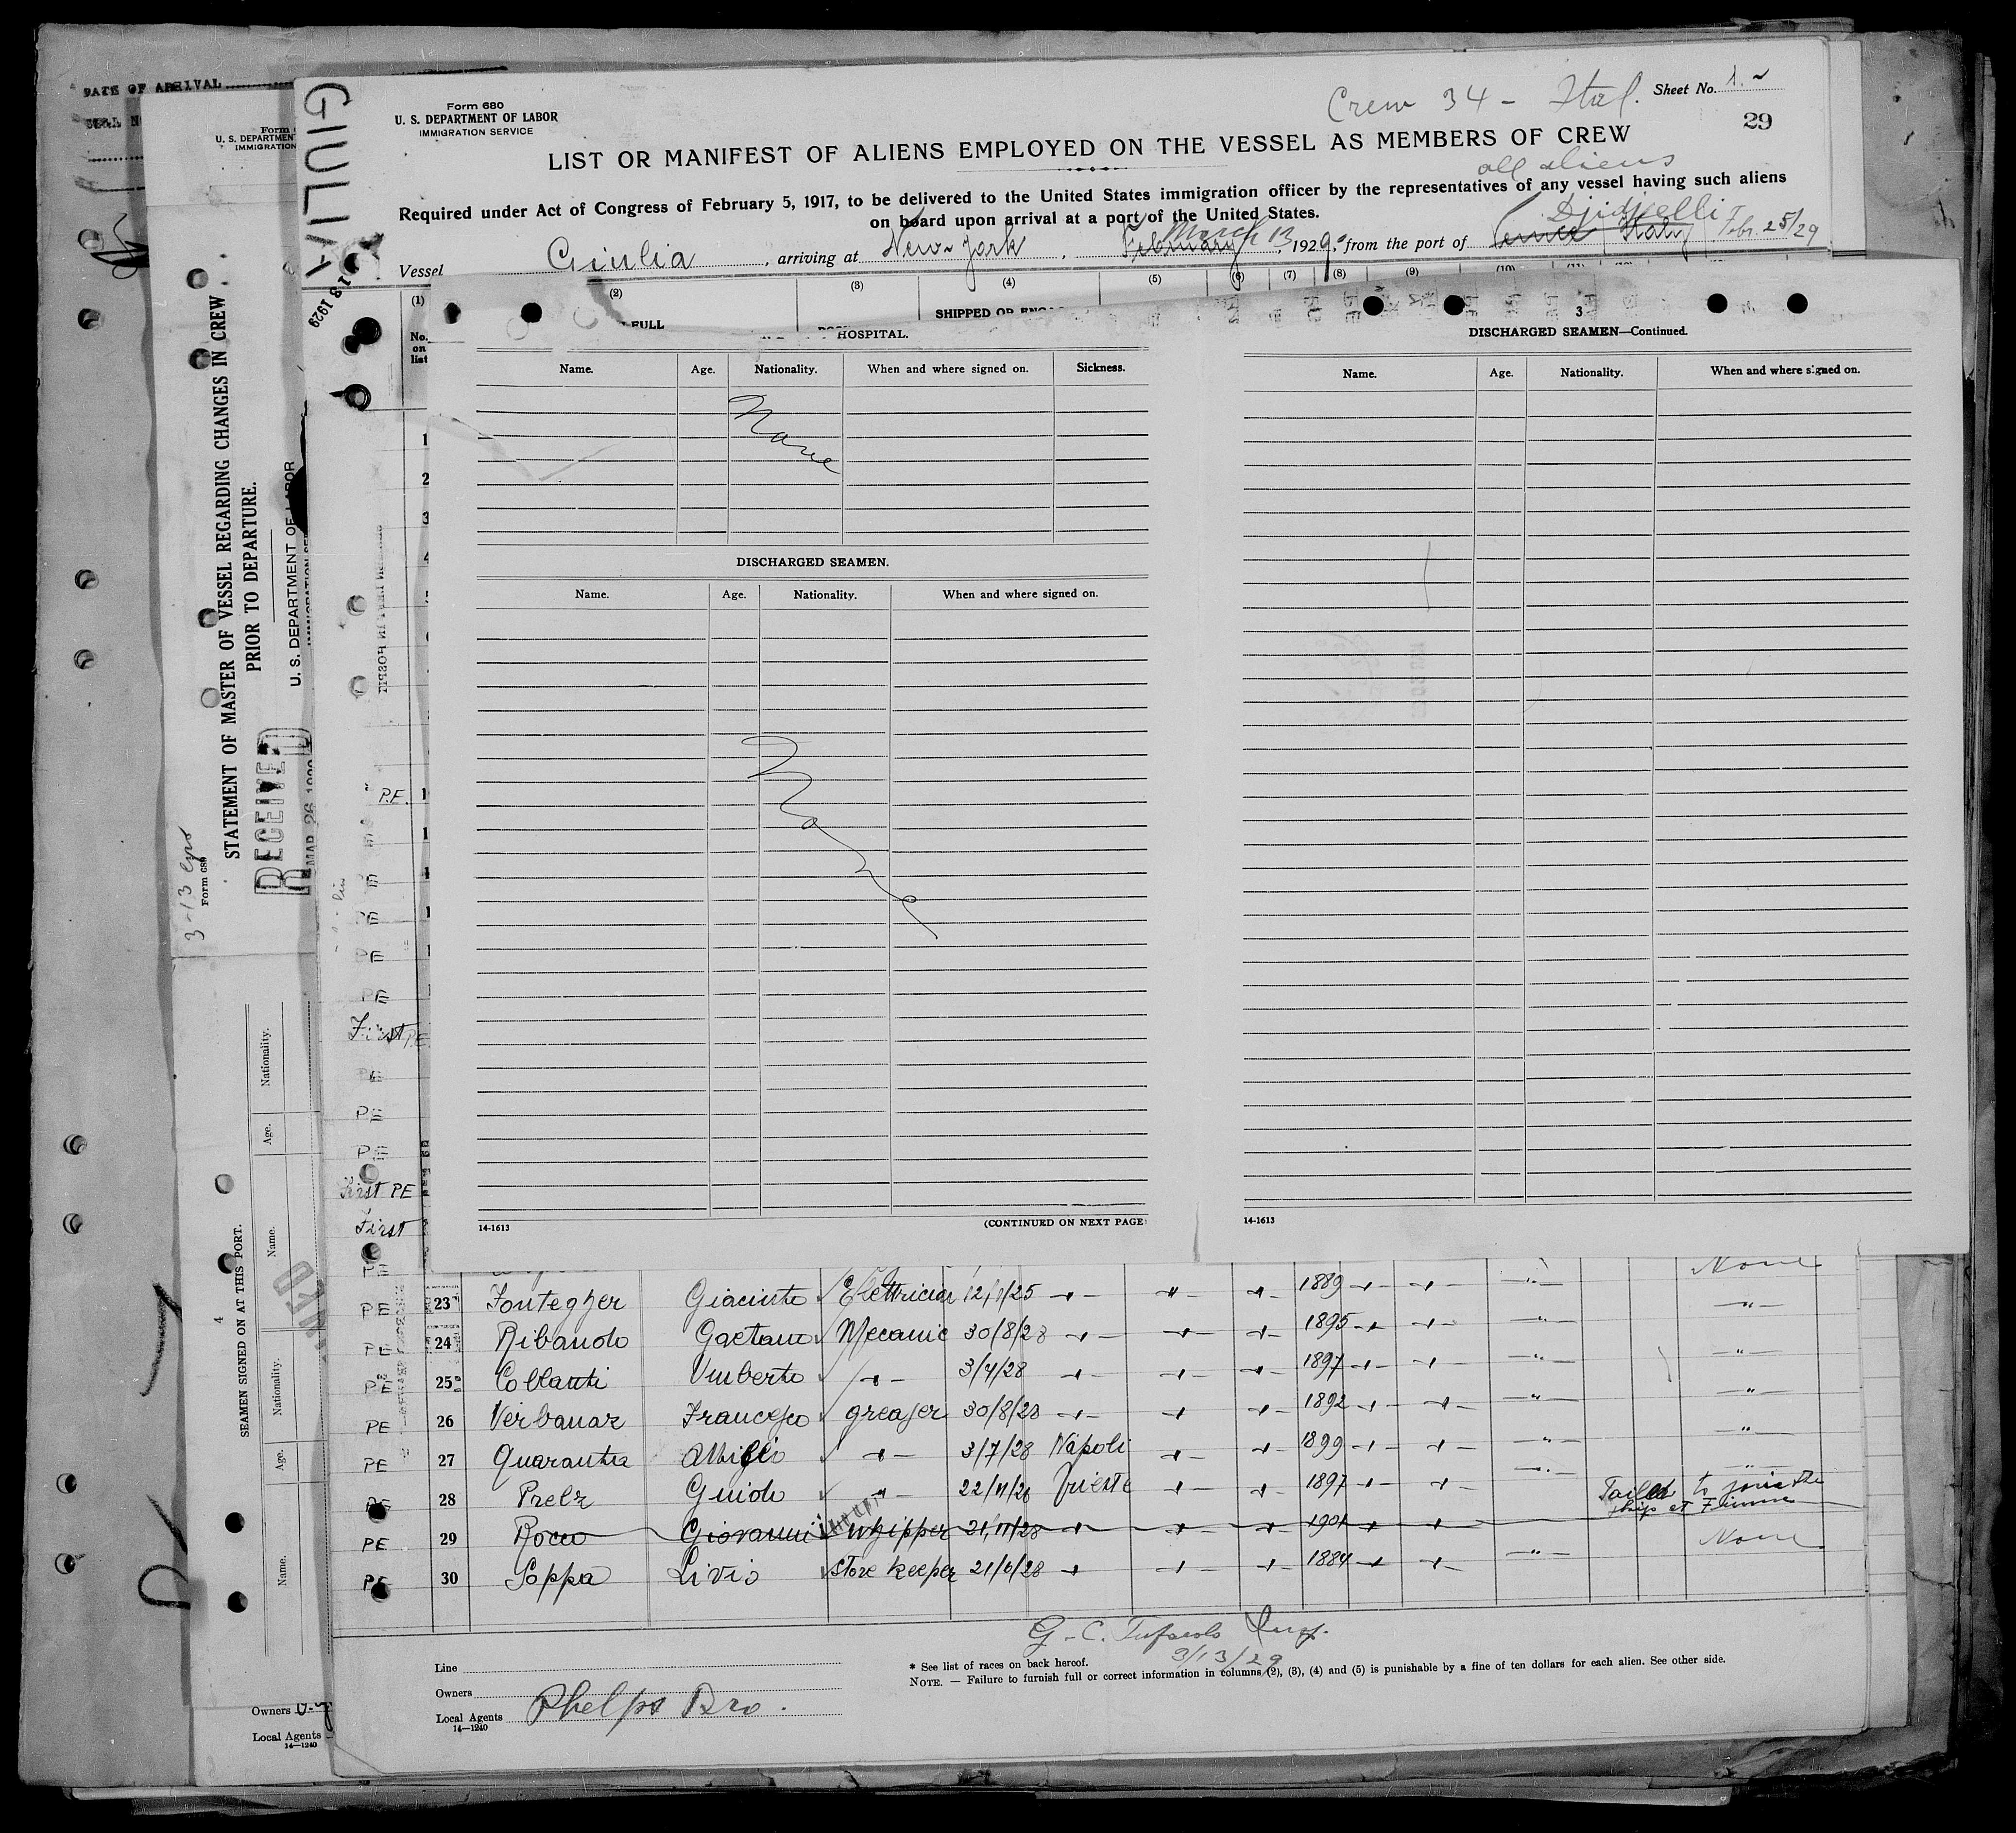 DATE OF ARRIVAL
Form 680
U. S. DEPARTMENT OF LABOR
IMMIGRATION SERVICE
Crew 34 - Ital.
Sheet No. 1.
29
GIULIA
LIST OR MANIFEST OF ALIENS EMPLOYED ON THE VESSEL AS MEMBERS OF CREW
all aliens
Required under Act of Congress of February 5, 1917, to be delivered to the United States immigration officer by the representatives of any vessel having such aliens
on board upon arrival at a port of the United States.
Djidjelli
March 13
Vessel Giulia, arriving at New-York, February, 1929, from the port of Italy Febr. 25/29
18 1929
(1) (2) (3) (4) (5) (6) (7) (8) (9) (10)
No. on list
FULL
SHIPPED OR
HOSPITAL.
Name. Age. Nationality. When and where signed on. Sickness.
None
DISCHARGED SEAMEN.
Name. Age. Nationality. When and where signed on.
None
14-1613
(CONTINUED ON NEXT PAGE
3
DISCHARGED SEAMEN—Continued.
Name. Age. Nationality. When and where signed on.
14-1613
U. S. DEPARTMENT
IMMIGRATION
3-13
Form 689
STATEMENT OF MASTER OF VESSEL REGARDING CHANGES IN CREW
PRIOR TO DEPARTURE.
U. S. DEPARTMENT OF LABOR
RECEIVED
MAR 26
4
SEAMEN SIGNED ON AT THIS PORT.
Name. Age. Nationality. Name. Age. Nationality.
P.E.
PE
PE
PE
PE
First P.E.
PE
PE
PE
First PE
First
PE
None
PE 23 Fontegher Giacinto Elettrician 12/1/25 " " " 1889 " " "
PE 24 Ribaudo Gaetano Mecanic 30/8/28 " " " 1895 " " " "
PE 25 Collanti Umberto " 3/4/28 " " " 1897 " " " "
PE 26 Verbanaz Francesco greaser 30/8/28 " " " 1892 " " " "
PE 27 Quarantia Attilio " 3/7/28 Napoli " " 1899 " " " "
PE 28 Prelz Guido " 22/11/28 Trieste " " 1897 " " " "
Failed to join the
ship at Fiume
PE 29 Rocco Giovanni Whipper 21/11/28 " " " 1901 " "
PE 30 Poppa Livio Store keeper 21/0/28 " " " 1884 " " " None
G. C. Insp.
3/13/29
Line
Owners
Local Agents Phelps Bro.
14—1240
* See list of races on back hereof.
NOTE. — Failure to furnish full or correct information in columns (2), (3), (4) and (5) is punishable by a fine of ten dollars for each alien. See other side.
Owners
Local Agents
14—1240